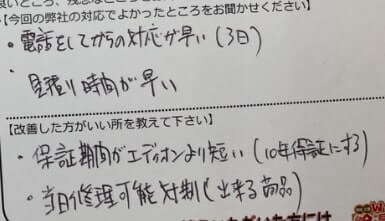 【今回の弊社の対応でよかったところをお聞かせください】
・電話をしてからの対応が早い(3日)
・見積り時間が早い
【改善した方がいい所を教えて下さい】
・保証期間がエディオンより短い(10年保証にする)
・当日修理可能対制(出来る商品)